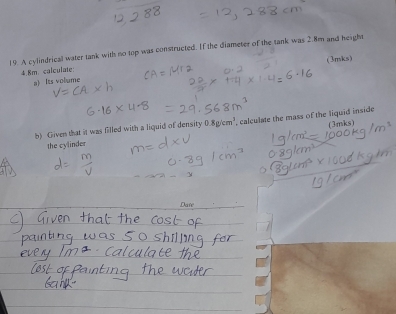 12,288 = 12,288 cm
19. A cylindrical water tank with no top was constructed. If the diameter of the tank was 2.8m and height
4.8m. calculate: (3mks)
a) Its volume
CA = πr²
V = CA × h
22/7 × 1.4 × 1.4 = 6.16
6.16 × 4.8 = 29.568m³
b) Given that it was filled with a liquid of density 0.8g/cm³, calculate the mass of the liquid inside
the cylinder (3mks)
d = m/V
m = d × V
0.8g/cm³
1g/cm³ = 1000kg/m³
0.8g/cm³
0.8g/cm³ × 1000kg/m
1g/cm³
Date
c) Given that the cost of
painting was 50 shilling for
every 1m² calculate the
cost of painting the water
tank.